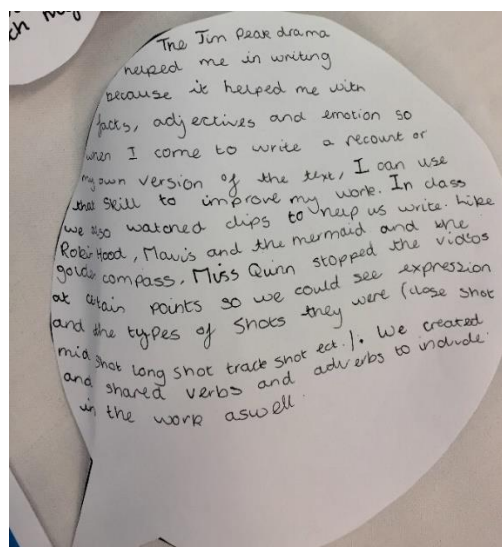 ch my
The Tim Peak drama
helped me in writing
because it helped me with
facts, adjectives and emotion so
when I come to write a recount or
my own version of the text, I can use
that skill to improve my work. In class
we also watched clips to help us write. Like
Robin Hood, Mavis and the mermaid and the
golden compass, Miss Quinn stopped the videos
at certain points so we could see expression
and the types of shots they were (close shot
mid shot long shot track shot ect.). We created
and shared verbs and adverbs to include
in the work aswell.